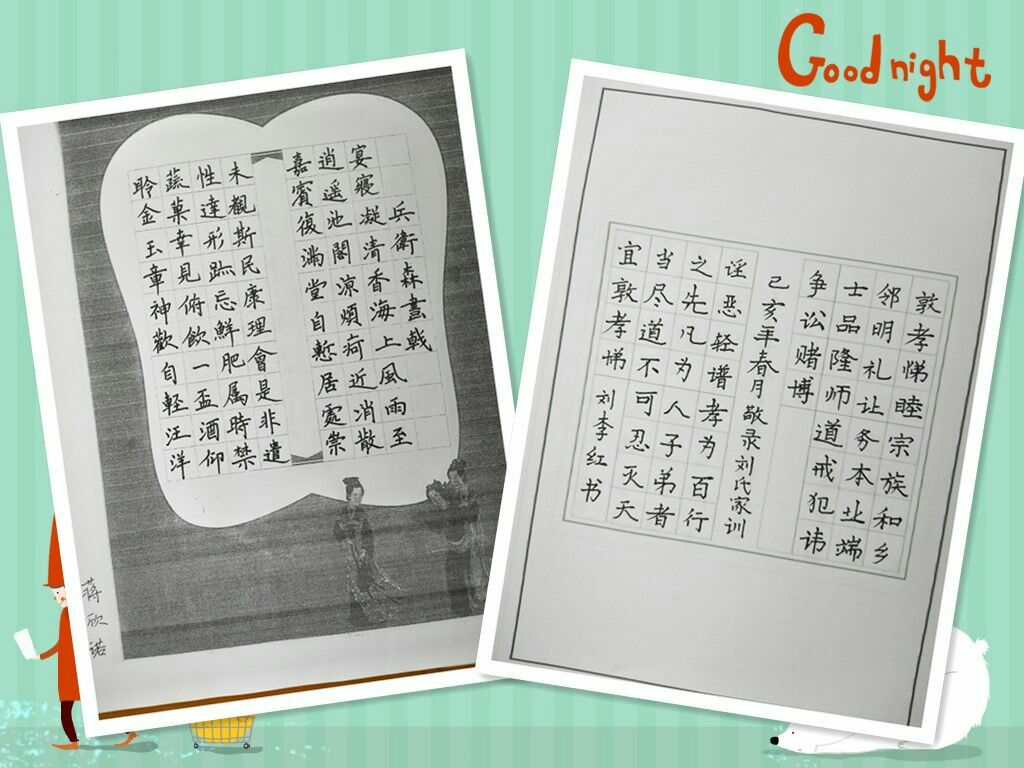 Good night
兵衛森畫戟
宴寢凝清香海上風雨至
逍遥池閣凉煩疴近消散
嘉賓復滿堂自慙居處崇
未觀斯民康理會是非遣
性達形跡忌鮮肥属時禁
蔬菓幸見俯飲一盃酒仰
聆金玉章神歡自輕汪洋
蒋欣诺
敦孝悌睦宗族和乡
邻明礼让务本业端
士品隆师道戒犯讳
争讼赌博
己亥年春月敬录刘氏家训
恶轻谱孝为百行
之先凡为人子弟者
当尽道不可忍灭天
宜敦孝悌
刘李红书